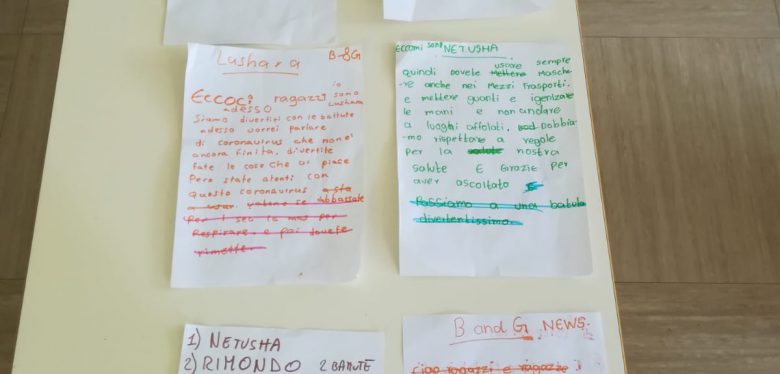 Lushara B-&G
Eccoci ragazzi io sono Lushara
adesso
Siamo divertiti con le battute
adesso vorrei parlare
di coronavirus che non è
ancora finita, divertite
fate le cose che ai piace
Pero state atenti con
questo coronavirus a sta
a usar
Per 1 sec la mas per
Respirare. e poi dovete
rimette.
Eccomi sono NETUSHA
usare sempre
quindi dovete Mettere Masche
re anche nei Mezzi Trasporti.
e mettere guanti e igenizare
le mani e non andare
a luoghi affolati, Dobbia-
mo rispettare a regole
per la salute nostra
salute E Grazie per
aver ascoltato
Passiamo a una batuta
divertentissima.
1) NETUSHA
2) RIMONDO 2 BATUTE
B and G NEWS.
ciao ragazzi e ragazze